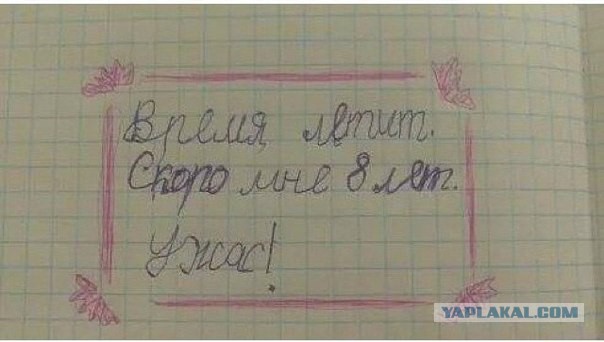 Время летит.
Скоро мне 8 лет.
Ужас!
YAPLAKAL.COM